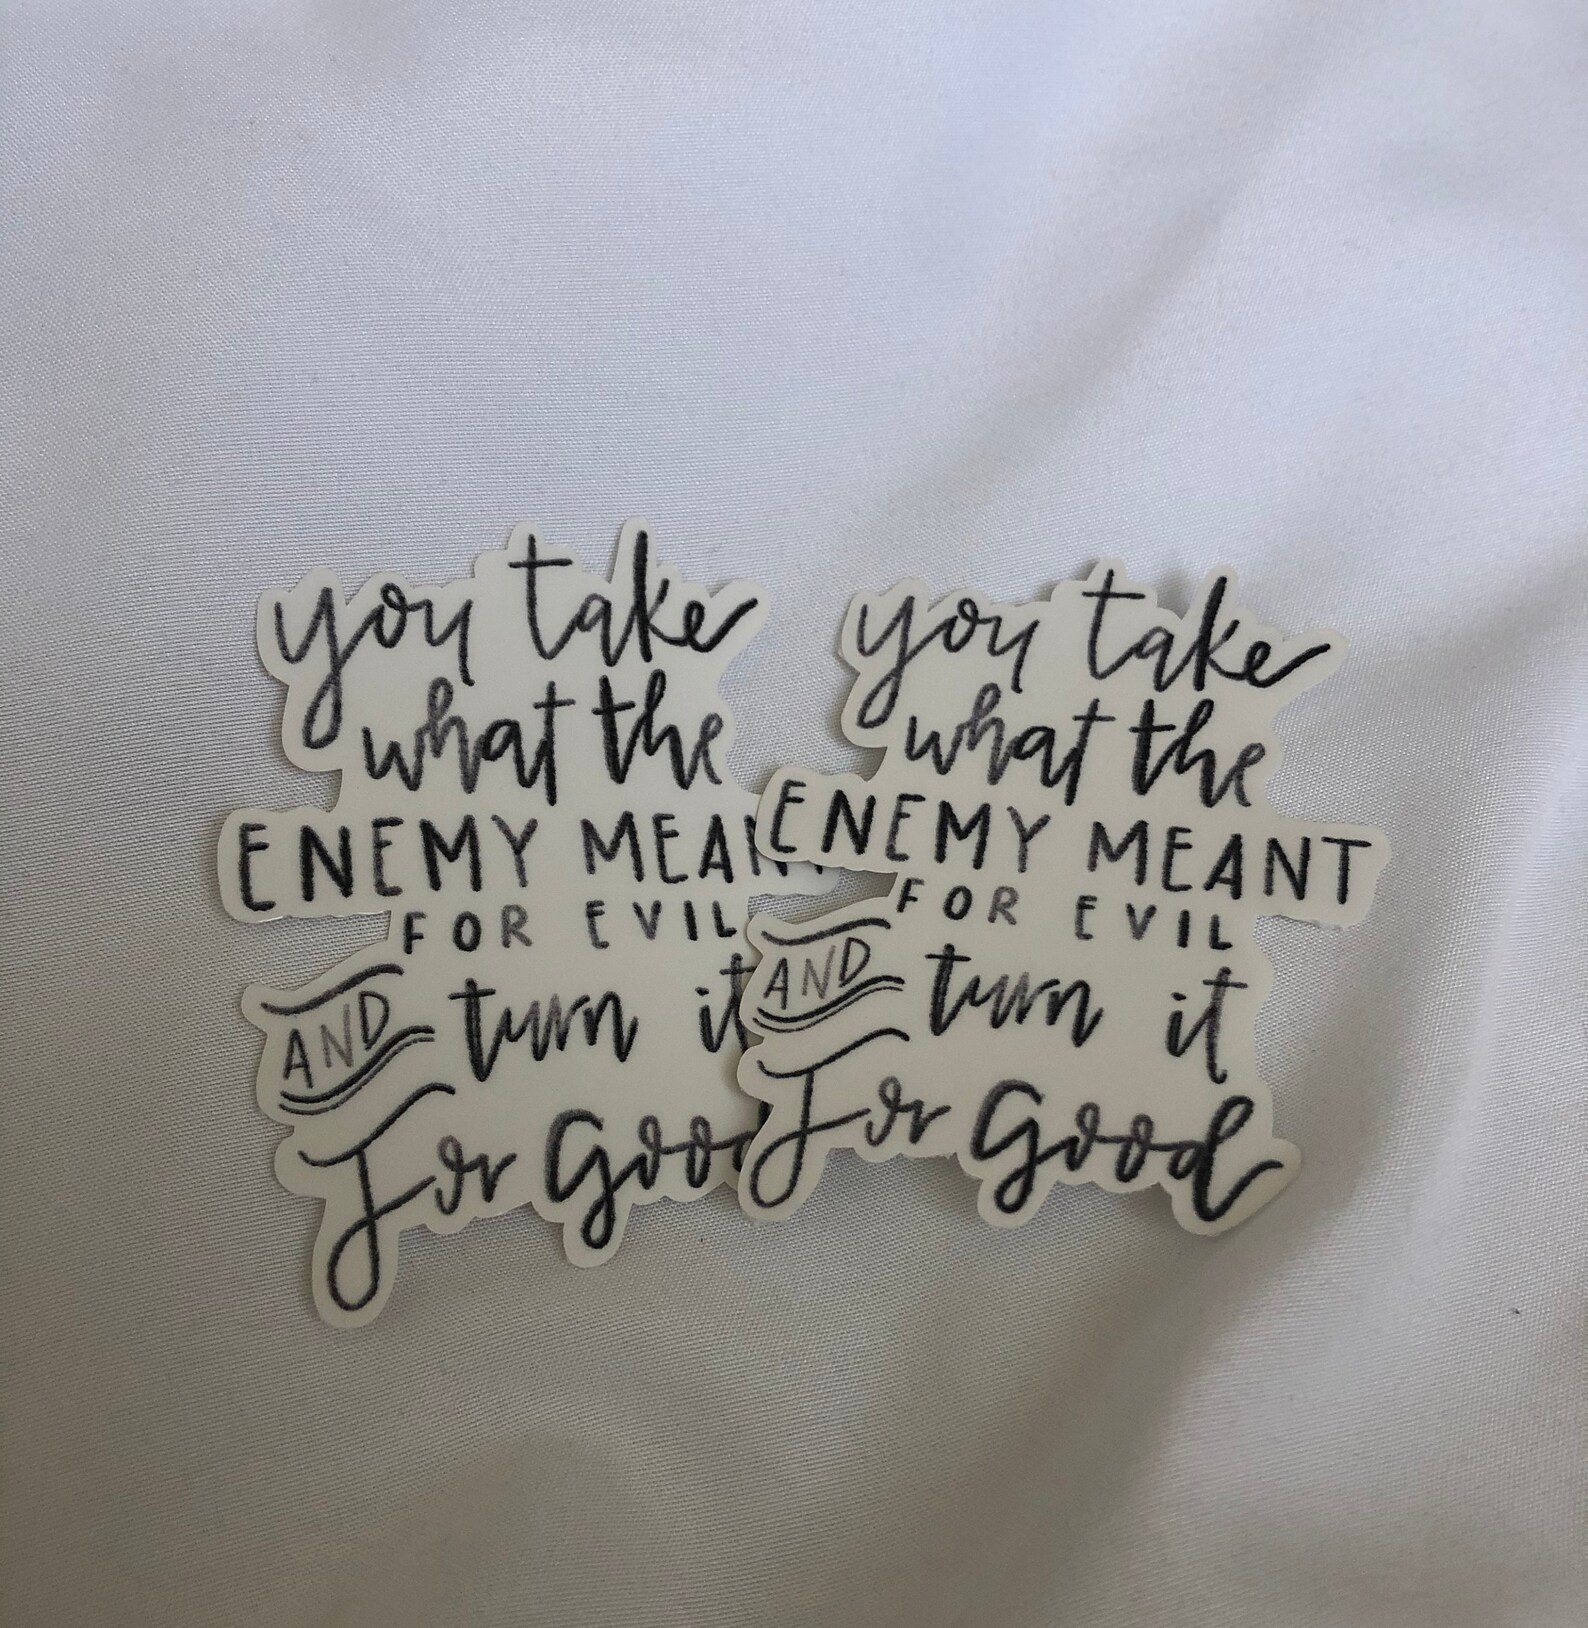 you take
what the
ENEMY MEAN
FOR EVIL
AND turn it
For Goo
you take
what the
ENEMY MEANT
FOR EVIL
AND turn it
For Good